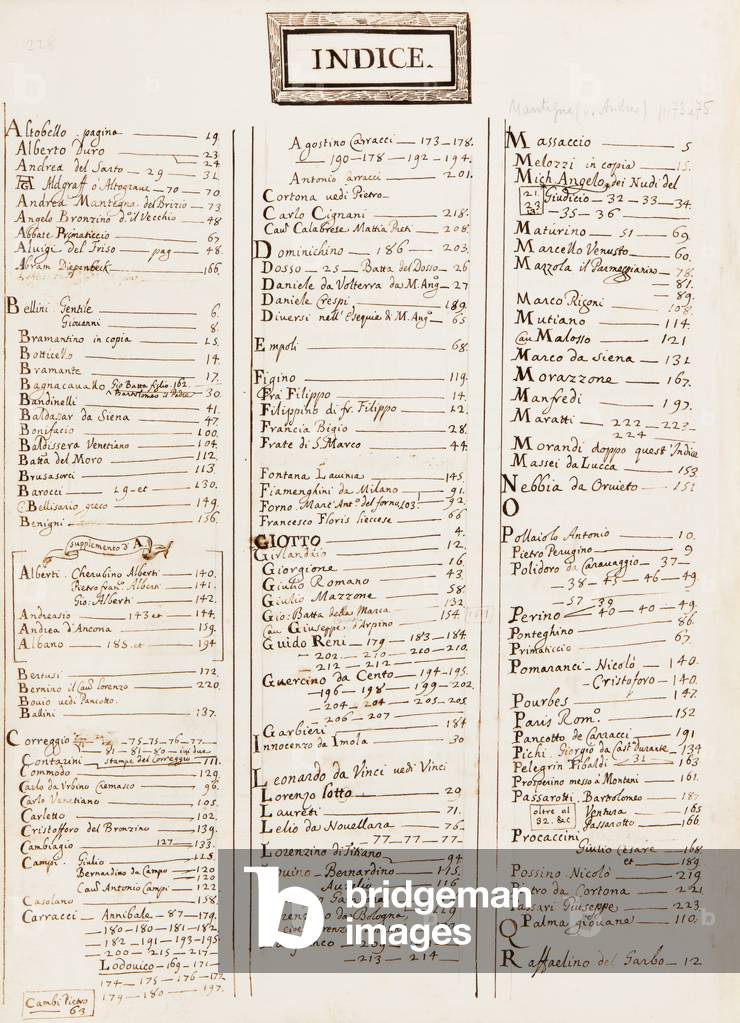 228
INDICE.
Altobello . pagina — 19
Alberto Duro — 23
24
Andrea del Sarto — 29 — 31
Aldgraff o' Altograue — 70 — 70
Andrea Mantegna. del Brizio — 73
Angelo Bronzino d.º il Vecchio — 48
Abbate Primaticcio — 67
Aluigi del Friso — pag — 48
Abram Diepenbeck — 166
Bellini Gentile — 6
Giovanni — 8
Bramantino in copia — 15
Botticello — 14
Bramante — 17
Bagnacauallo Gio Batta figlio 162
Bartolomeo il Padre — 30
Bandinelli
Baldasar da Siena — 41
47
Bonifacio — 100
Baldissera Venetiano — 104
Batta del Moro — 112
Brusasorci — 113
Barocci — 29 - et — 130
Bellisario greco — 149
Benigni — 156
supplemento d'A
Alberti Cherubino Alberti — 140
Pietro fran.º Alberti — 141
Gio: Alberti — 142
Andreasio — 143 et — 144
Andrea d'Ancona — 159
Albano — 185 et — 194
Bertusi — 172
Bernino il Cau.r Lorenzo — 220
Bouio vedi Pancotto
Ballini — 137
Correggio — 75-75-76-77
81-81-80
Contarini stampe del Correggio — 111
Commodo — 129
Carlo da Vrbino Cremasco — 96
Carlo Venetiano — 105
Carletto — 102
Cristofforo del Bronzino — 139
Cambiagio — 127 — 133
Campi. Giulio — 125
Bernardino da Campo — 120
120
Cau.r Antonio Campi — 122
Casolano — 158
Carracci — Annibale — 87 — 179
— 180 — 180 — 181 — 182
— 182 — 191 — 193 — 195
— 200 — 215 — 217
Lodouico — 169 — 171
174 — 175 — 176 — 177
179 — 180 — 197
Cambi Pietro
63
Agostino Carracci — 173 — 178
— 190 — 178 — 192 — 194
Antonio arracci — 201
Cortona vedi Pietro
Carlo Cignani — 218
Cau.r Calabrese Mattia Preti — 208
Dominichino — 186 — 203
Dosso — 25 — Batta del Dosso — 26
Daniele da Volterra da M. Ang.º — 27
Daniele Crespi — 189
Diversi nell'Esequie di M. Ang.º — 65
Empoli — 68
Figino — 119
Fra Filippo — 14
Filippino di fr. Filippo — 12
Francia Bigio — 28
Frate di S. Marco — 44
Fontana Lauinia — 145
Fiamenghini da Milano — 91
Forno Marc'Ant.º del forno 103 — 92
Francesco Floris liecese — 66
GIOTTO — 4
Girlandaio — 12
Giorgione — 16
Giulio Romano — 43
Giulio Mazzone — 58
Gio: Batta della Marca — 132
Cau Giuseppe d'Arpino — 154
Guido Reni — 179 — 183 — 184
— 202 — 270 — 210 — 210
— 212 — 212
Guercino da Cento — 194-195
— 196 — 198 — 199 — 202
— 204 — 204 — 205 — 205
— 206 — 207
Garbieri — 184
Innocenzo da Imola — 30
Leonardo da Vinci vedi Vinci
Lorenzo Lotto — 29
Laureti — 71
Lelio da Nouellara — 76
— 77 — 77 — 77
Lorenzino di Titiano — 94
Bernardino — 115
Aurelio — 116
da Bologna
— 213 — 214 —
Mantegna (v. Andrea) p. 73 e 75
Massaccio — 5
Melozzi in copia — 15
Mich Angelo, dei Nudi del
21. 22 23
Giudicio — 32 — 33 — 34
— 35 — 36
Maturino — 51 — 69
Marcello Venusto — 60
Mazzola il Parmeggianino — 78
— 81
— 89
Marco Rigoni — 108
Mutiano — 114
Cau Malosso — 121
Marco da Siena — 131
Morazzone — 167
Manfredi — 197
Maratti — 222 — 223
224
Morandi doppo quest'Indice
Massei da Lucca — 153
Nebbia da Oruieto — 151
O
Pollaiolo Antonio — 10
Pietro Perugino — 9
Polidoro da Carauaggio — 37
— 38 — 45 — 46 — 49
— 57 — 39
Perino — 40 — 40 — 49
Ponteghino — 86
Primaticcio — 67
Pomaranci - Nicolò — 140
— Cristoforo — 140
Pourbes — 147
Paris Rom.º — 152
Pancotto de Carracci — 191
Pichi. Giorgio da Cast. Durante — 134
Pelegrin Tibaldi — 31 — 163
Prosperino messo à Montani — 161
Passarotti. Bartolomeo — 187
oltre al
32. &c
Ventura — 165
Passarotto — 166
Procaccini
Giulio Cesare — 168
et — 189
Possino Nicolò — 219
Pietro da Cortona — 221
Passari Giuseppe — 223
Palma giouane — 110
Q
Raffaelino del Garbo — 12
bridgeman
images